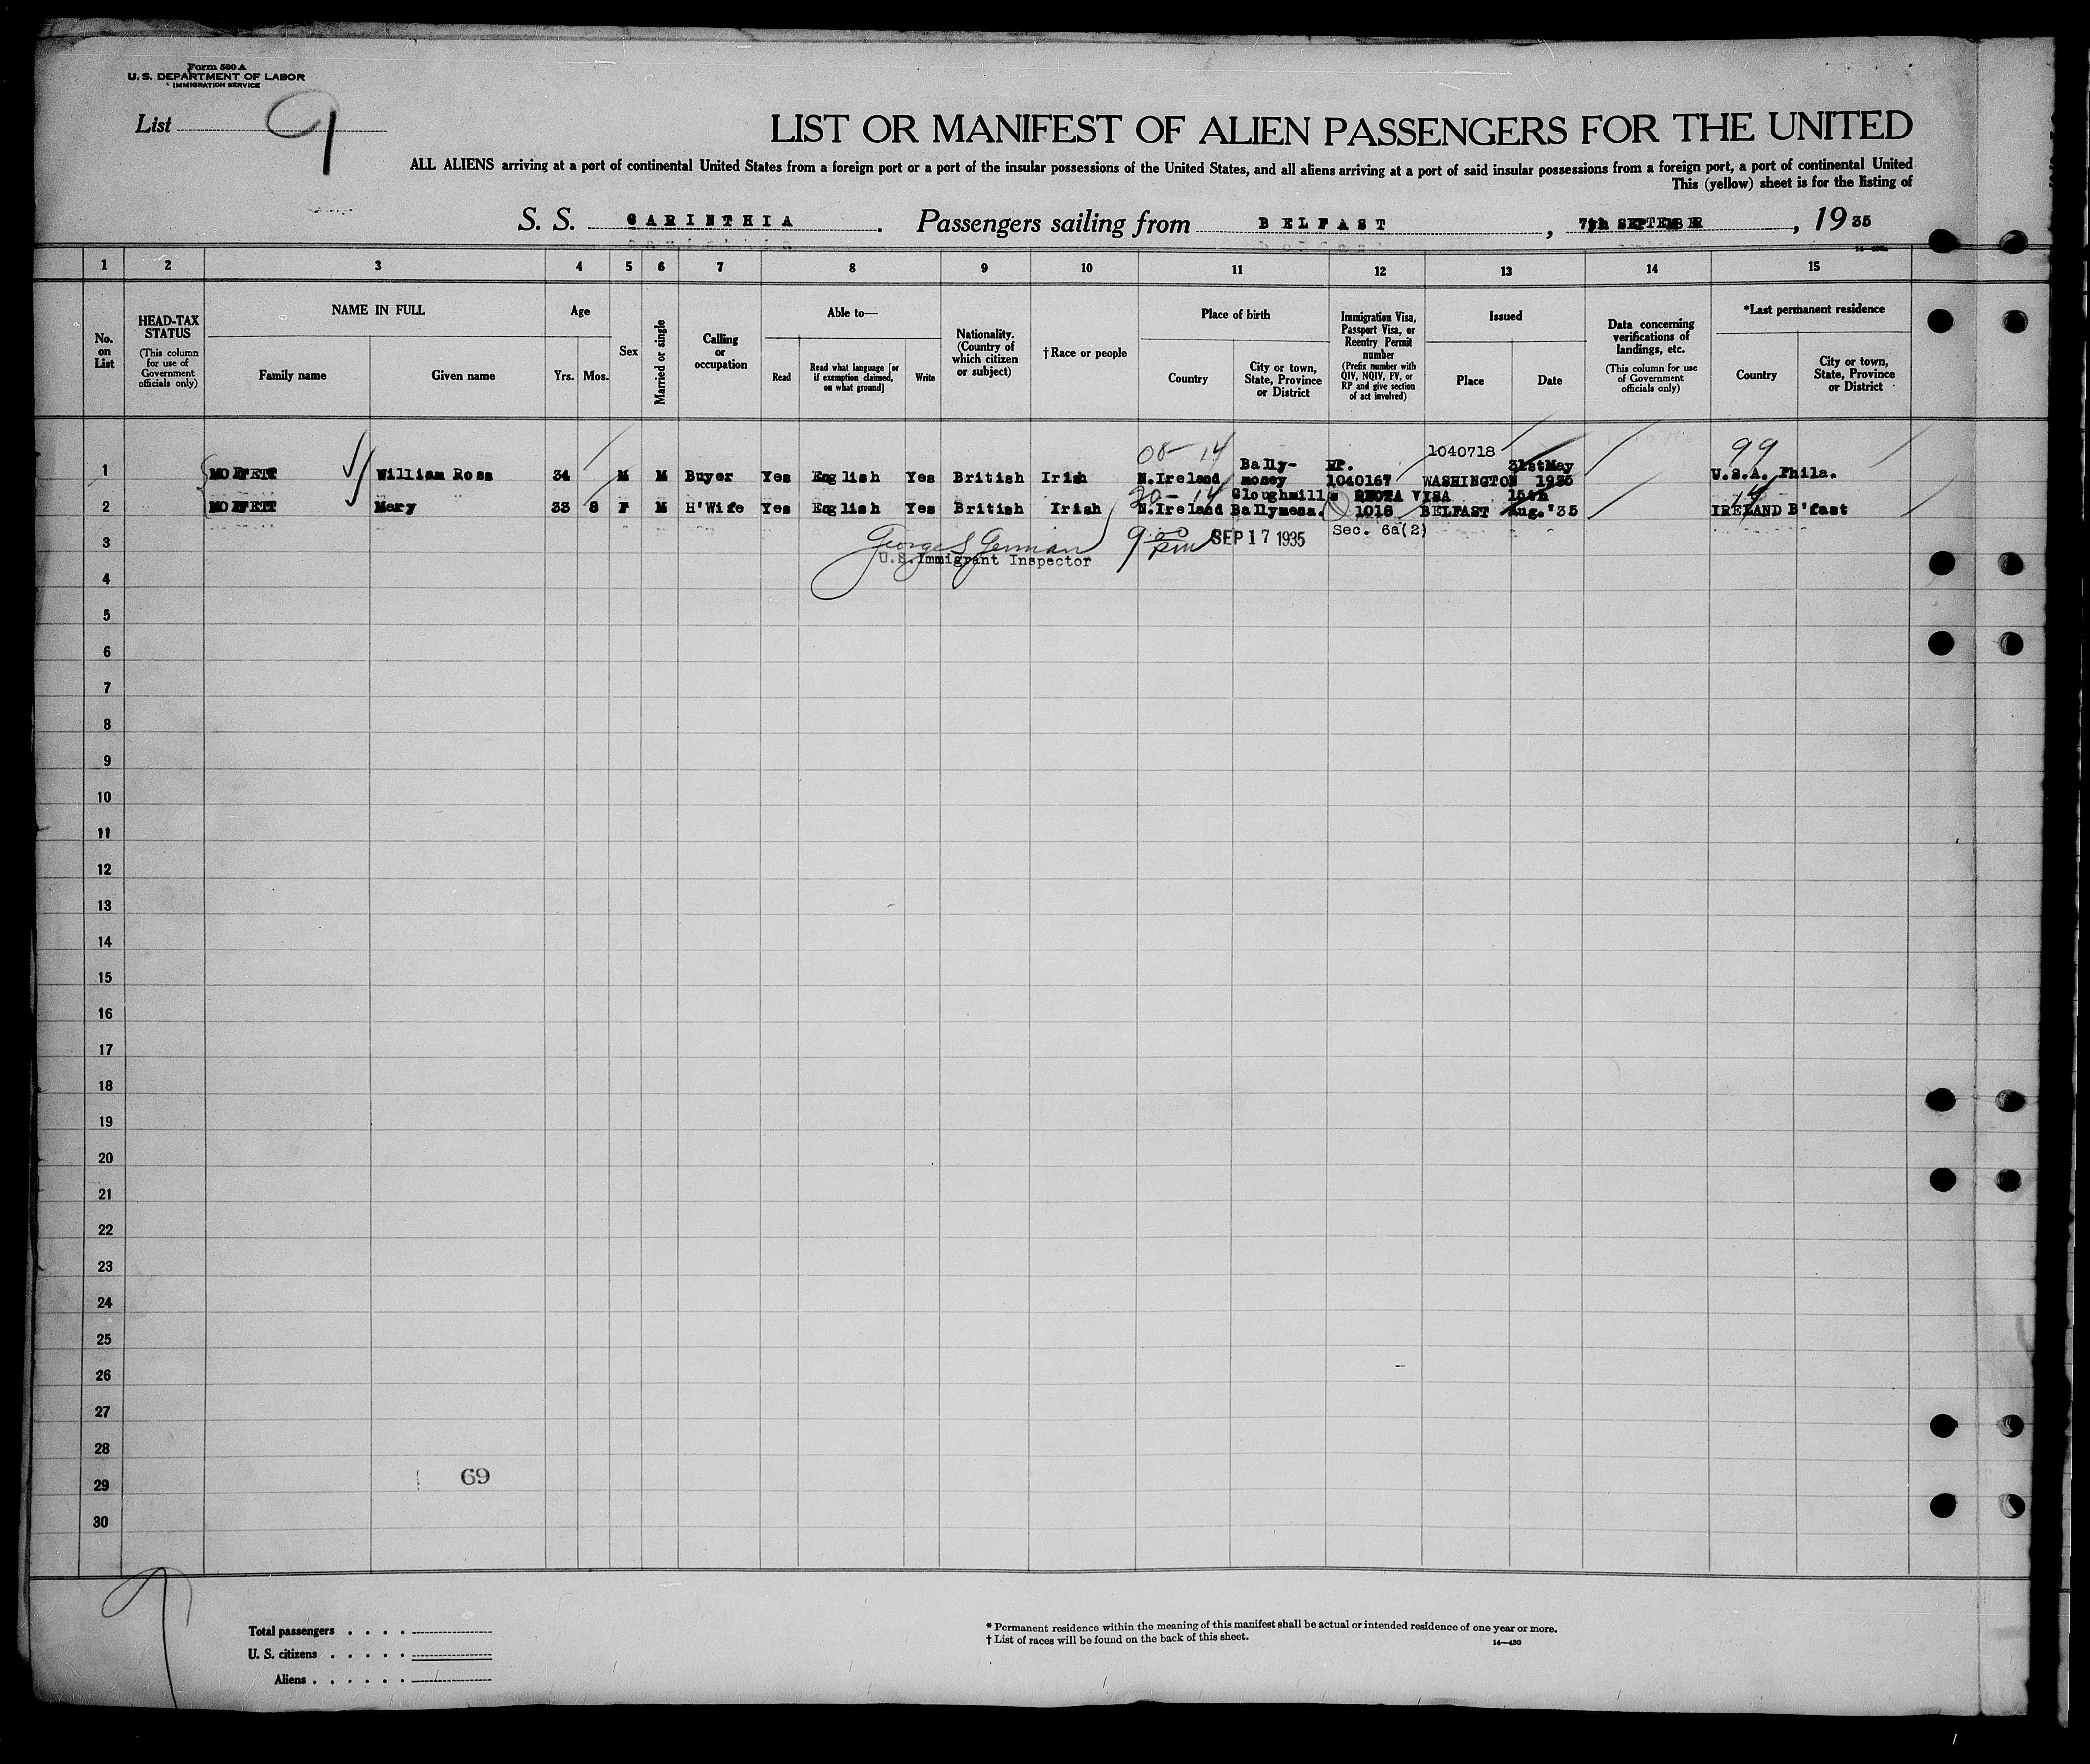 Form 500 A
U. S. DEPARTMENT OF LABOR
IMMIGRATION SERVICE
List 9
LIST OR MANIFEST OF ALIEN PASSENGERS FOR THE UNITED
ALL ALIENS arriving at a port of continental United States from a foreign port or a port of the insular possessions of the United States, and all aliens arriving at a port of said insular possessions from a foreign port, a port of continental United
This (yellow) sheet is for the listing of
S. S. CARINTHIA . Passengers sailing from BELFAST , 7th SEPTEMBER , 19 35
1 2 3 4 5 6 7 8 9 10 11 12 13 14 15
No. on List
HEAD-TAX STATUS
(This column for use of Government officials only)
NAME IN FULL
Family name Given name
Age
Yrs. Mos.
Sex
Married or single
Calling or occupation
Able to—
Read
Read what language [or if exemption claimed, on what ground]
Write
Nationality. (Country of which citizen or subject)
† Race or people
Place of birth
Country
City or town, State, Province or District
Immigration Visa, Passport Visa, or Reentry Permit number
(Prefix number with QIV, NQIV, PV, or RP and give section of act involved)
Issued
Place Date
Data concerning verifications of landings, etc.
(This column for use of Government officials only)
*Last permanent residence
Country
City or town, State, Province or District
08-14 1040718 99
1 MOFFETT William Ross 34 M M Buyer Yes English Yes British Irish N.Ireland Bally-money RP. 1040167 WASHINGTON 31st May 1935 U.S.A. Phila.
20-14 14
2 MOFFETT Mary 33 8 F M H'Wife Yes English Yes British Irish N.Ireland Cloughmills Ballymena. QUOTA VISA 1018 BELFAST 15th Aug.'35 IRELAND B'fast
3 George S German 9 50 pm SEP 17 1935 Sec. 6a(2)
U.S. Immigrant Inspector
4
5
6
7
8
9
10
11
12
13
14
15
16
17
18
19
20
21
22
23
24
25
26
27
28
69
29
30
9
Total passengers . . . .
U. S. citizens . . . . .
Aliens . . . . . .
* Permanent residence within the meaning of this manifest shall be actual or intended residence of one year or more.
† List of races will be found on the back of this sheet.
14—430